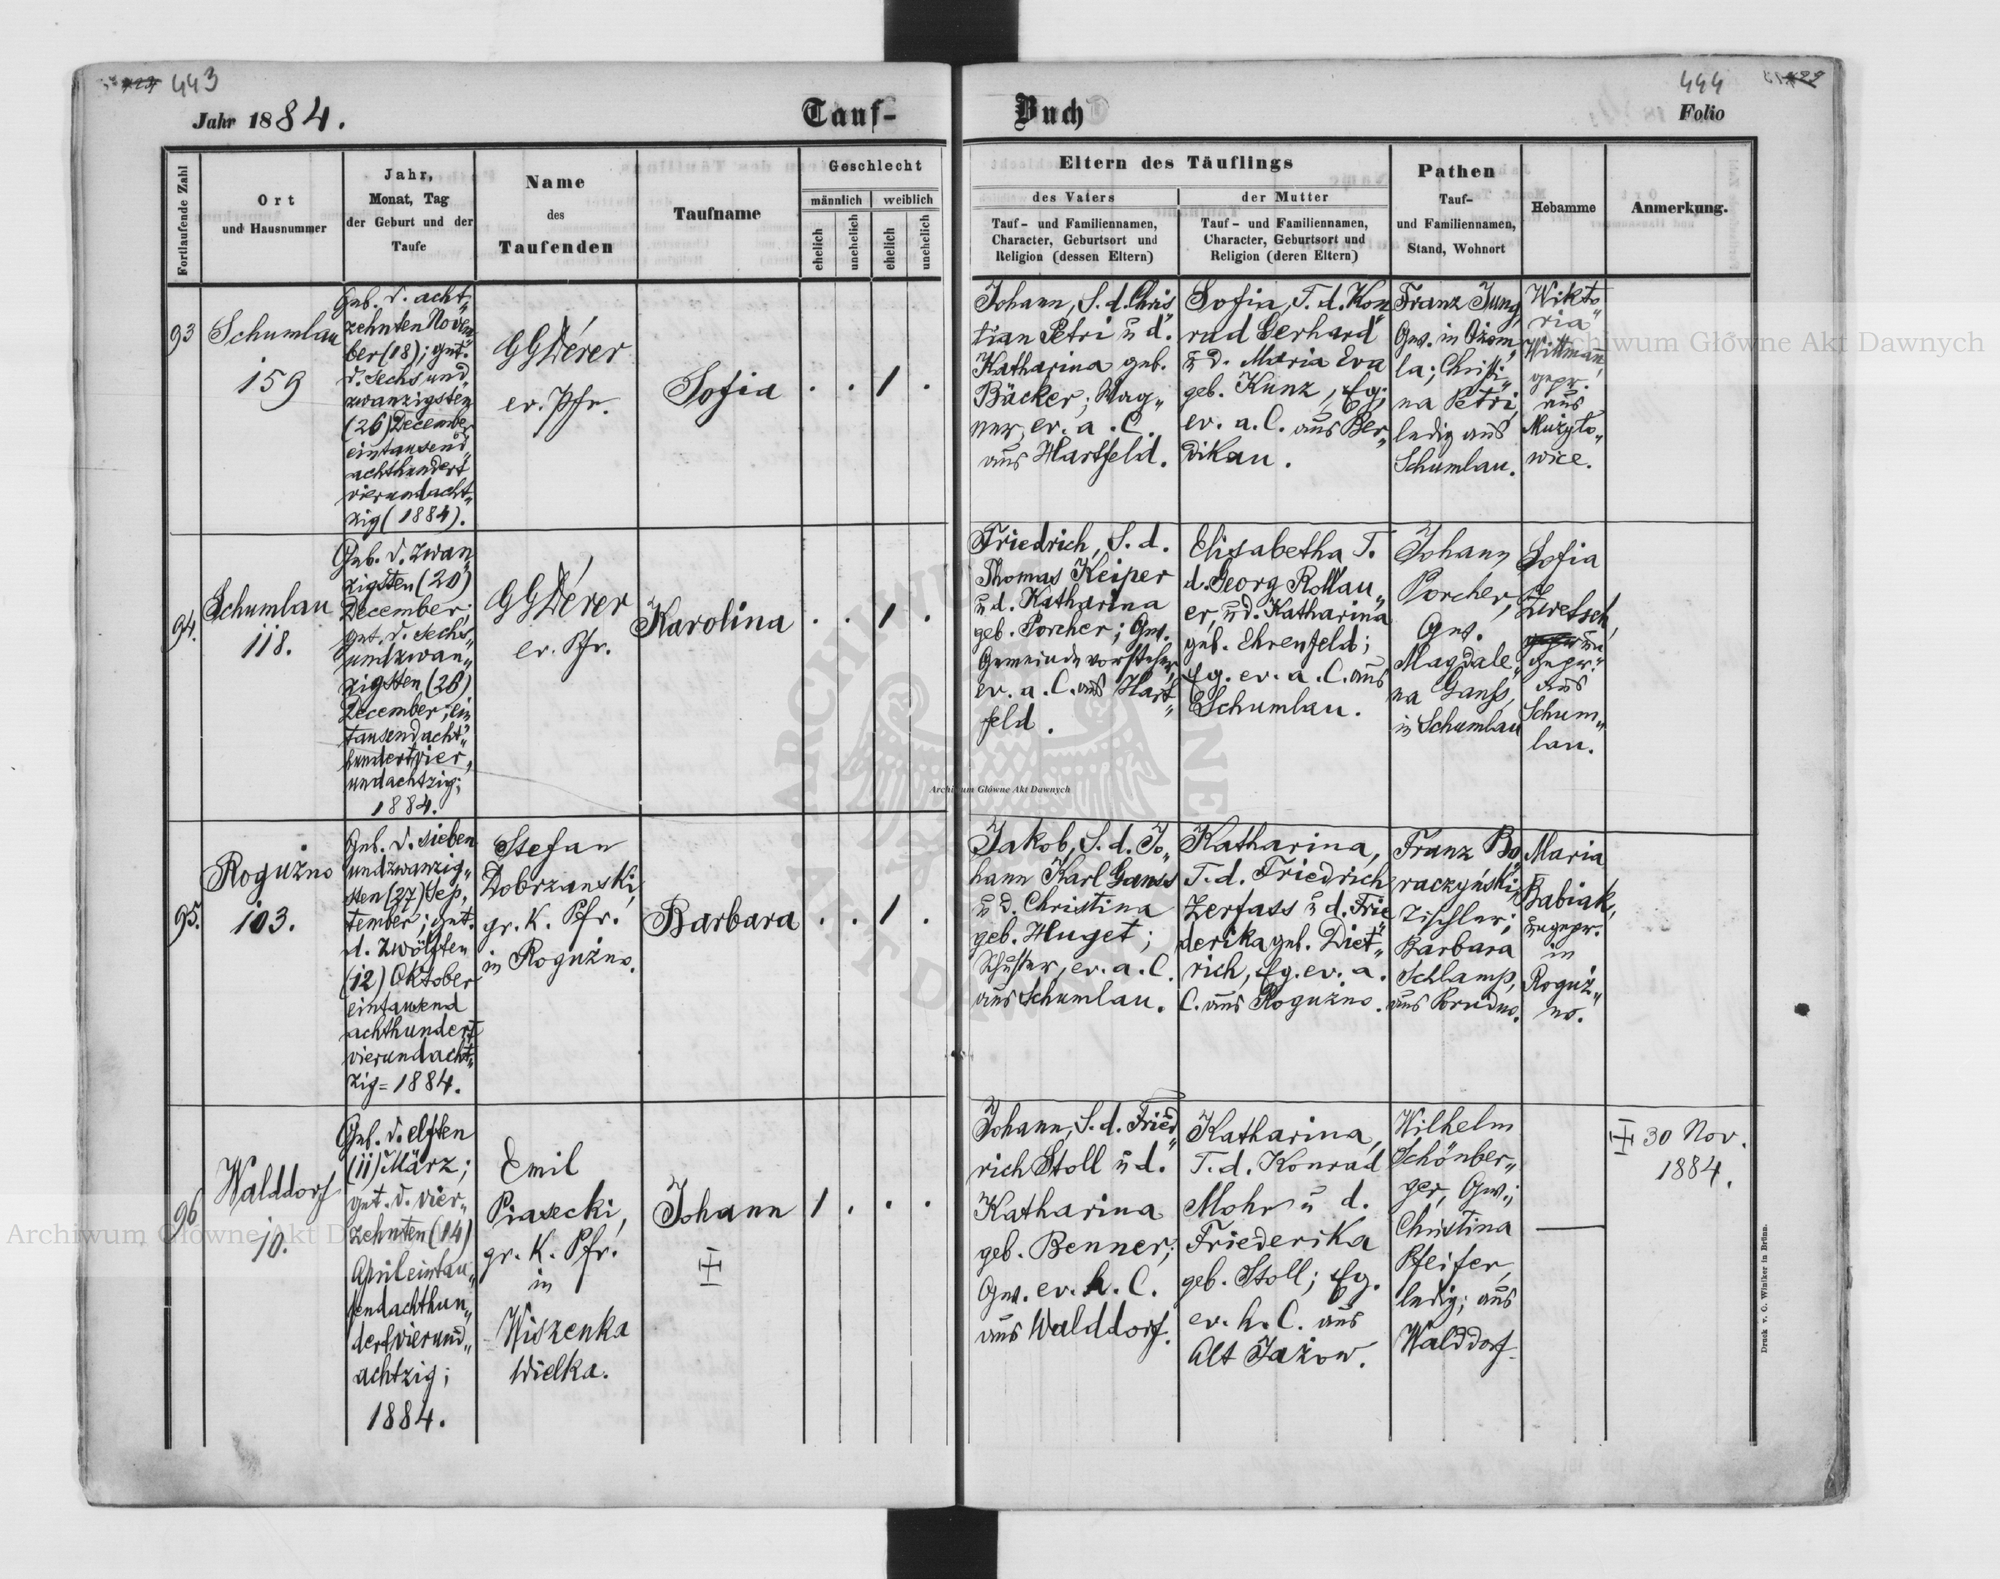 443
444
Jahr 1884.
Tauf-
Buch
Folio
Fortlaufende Zahl
Ort
und Hausnummer
Jahr,
Monat, Tag
der Geburt und der
Taufe
Name
des
Taufenden
Taufname
Geschlecht
männlich
weiblich
ehelich
unehelich
ehelich
unehelich
Eltern des Täuflings
des Vaters
Tauf- und Familiennamen,
Character, Geburtsort und
Religion (dessen Eltern)
der Mutter
Tauf- und Familiennamen,
Character, Geburtsort und
Religion (deren Eltern)
Pathen
Tauf-
und Familiennamen,
Stand, Wohnort
Hebamme
Anmerkung.
93
Schumlau
159
Geb. d. acht„
zehnten Novem„
ber (18); get.
d. sechs und„
zwanzigsten
(26) December
eintausend„
achthundert
vierundacht„
zig (1884).
GGDérer
ev. Pfr.
Sofia
. . 1 .
Johann, S. d. Chris„
tian Petri u d.
Katharina geb.
Bäcker; Wag„
ner, ev. a. C.
aus Hartfeld.
Sofia, T. d. Kon„
rad Gerhard
u d. Maria Eva
geb. Kunz, Eg;
ev. a. C. aus Ber„
dikau.
Franz Jung,
Gw. in Ozom„
la; Christi„
na Petri,
ledig aus
Schumlau.
Wikto„
ria
Wittman,
gepr.
aus
Mużyło„
wice.
94.
Schumlau
118.
Geb. d. zwan„
zigsten (20)
December;
get. d. sechs„
undzwan„
zigsten (26)
December; ein
tausendacht„
hundertvier„
undachtzig;
1884.
GGDérer
ev. Pfr.
Karolina
. . 1 .
Friedrich, S. d.
Thomas Keiper
u d. Katharina
geb. Porcher; Gw.
Gemeindevorsteher,
ev. a. C. aus Hart„
feld.
Elisabetha T.
d. Georg Rollau„
er, u d. Katharina
geb. Ehrenfeld;
Eg. ev. a. C. aus
Schumlau.
Johann
Porcher,
Gw.
Magdale„
na Ganss,
in Schumlau
Sofia
Zwetsch,
gepr.
aus
Schum„
lau.
95.
Roguźno
103.
Geb. d. sieben
undzwanzig„
sten (27) Sep„
tember; get.
d. zwölften
(12) Oktober
eintausend
achthundert
vierundacht„
zig = 1884.
Stefan
Dobrzanski,
gr. K. Pfr.
in Roguźno.
Barbara
. . 1 .
Jakob, S. d. Jo„
hann Karl Ganss
u d. Christina
geb. Huget;
Schuster, ev. a. C.
aus Schumlau.
Katharina,
T. d. Friedrich
Zerfass u d. Frie„
derika geb. Diet„
rich, Eg. ev. a.
C. aus Roguźno.
Franz Bo„
raczyński,
Tischler;
Barbara
Schlamp,
aus Porudno.
Maria
Babiak,
ungepr.
in
Roguź„
no.
96
Walddorf
10.
Geb. d. elften
(11) März;
get. d. vier„
zehnten (14)
April eintau„
sendachthun„
dertvierund„
achtzig;
1884.
Emil
Piasecki,
gr. K. Pfr.
in
Wiszenka
Wielka.
Johann
1 . . .
Johann, S. d. Fried„
rich Stoll u d.
Katharina
geb. Benner;
Gw. ev. h. C.
aus Walddorf.
Katharina,
T. d. Konrad
Mohr u d.
Friederika
geb. Stoll; Eg.
ev. h. C. aus
Alt Jażow.
Wilhelm
Schönber„
ger, Gw.;
Christina
Pfeifer,
ledig; aus
Walddorf.
30 Nov.
1884.
Druck v. C. Winiker in Brünn.
Archiwum Główne Akt Dawnych
Archiwum Główne Akt Dawnych
Archiwum Główne Akt Dawnych